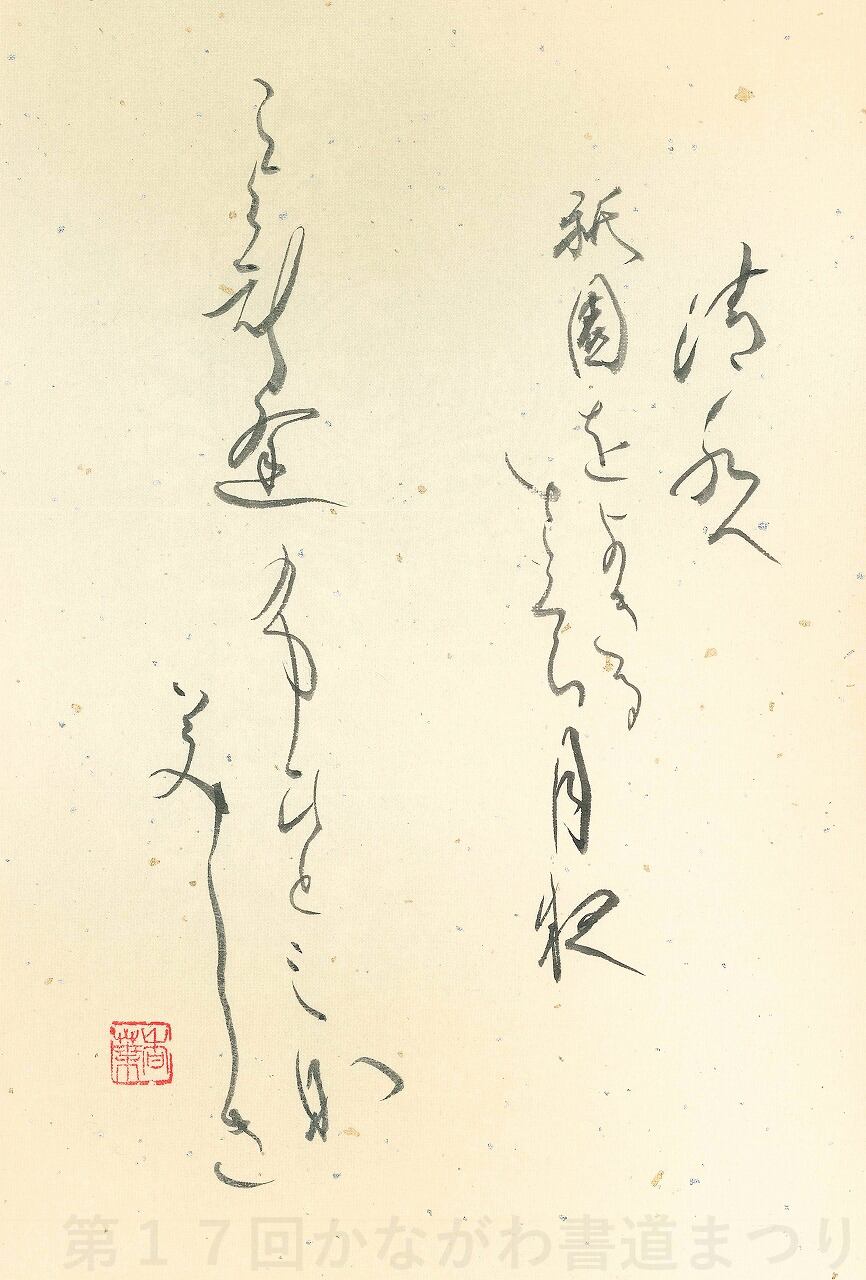 清水へ
祇園をよぎる
さくら月夜
こよひ逢ふ
人みな
美しき
香葉
第17回かながわ書道まつり